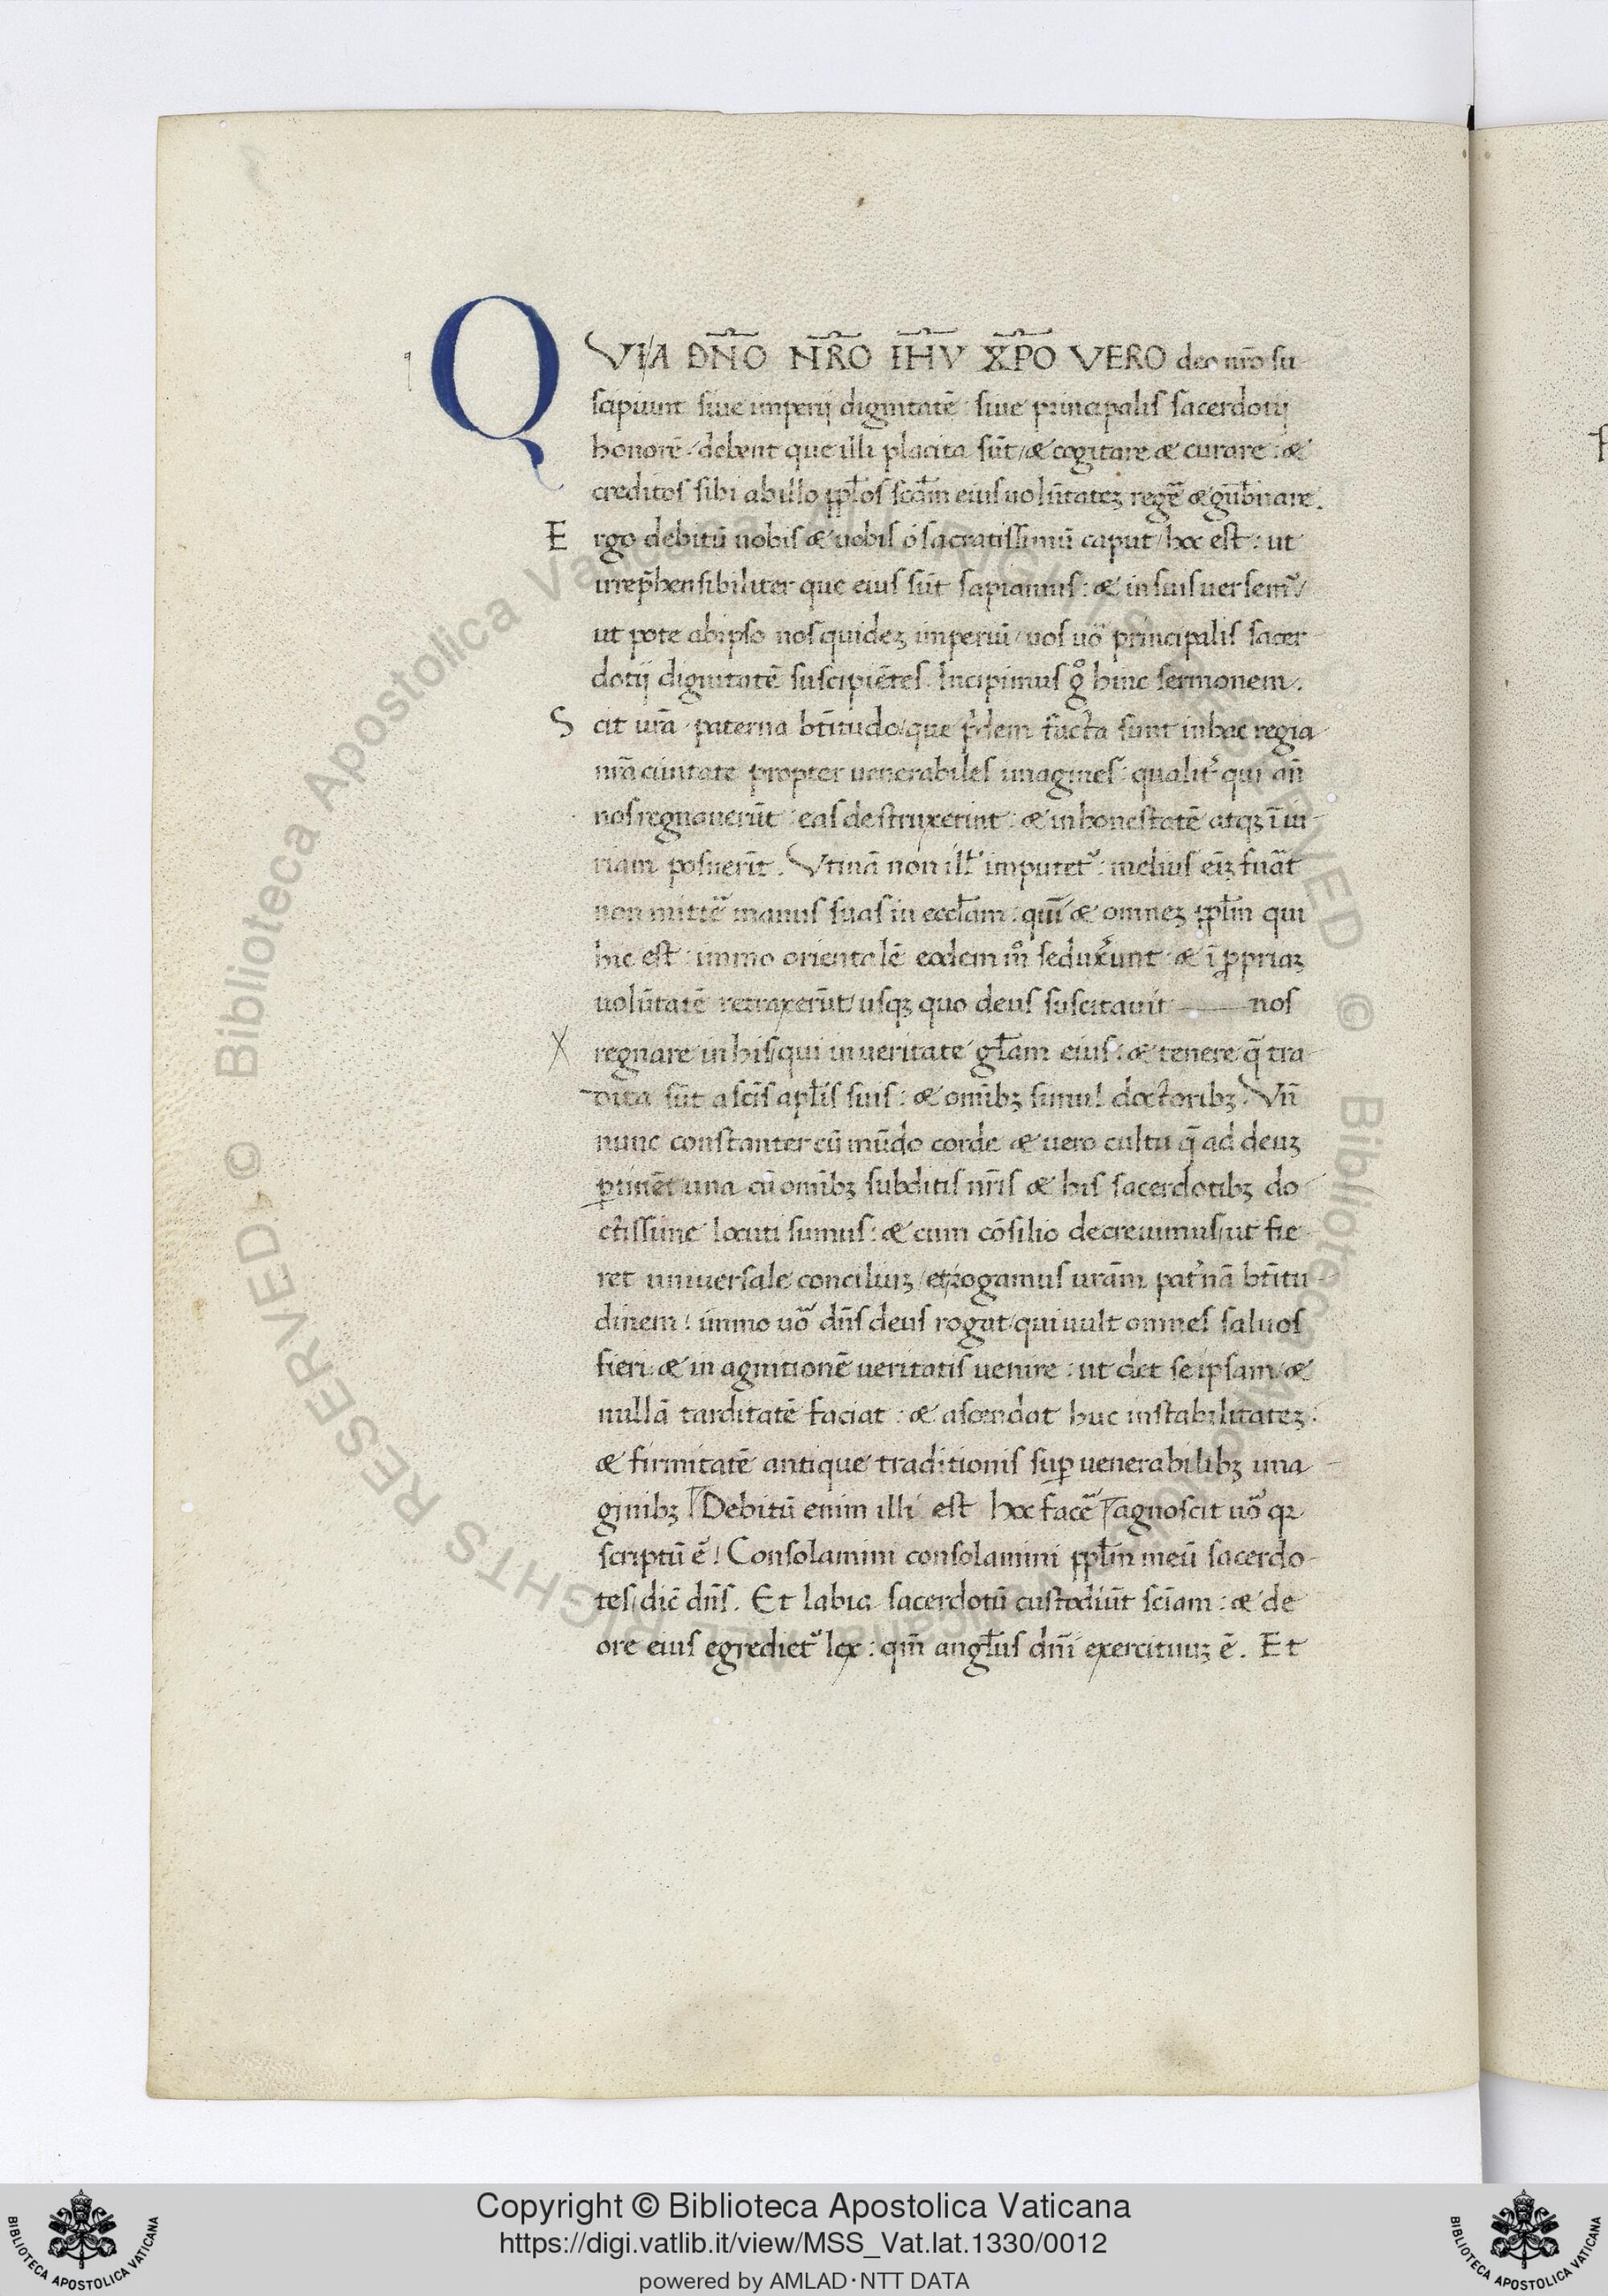 QVIA DN̄O NR̄O IH̄V XP̄O VERO deo nr̄o su
scipiunt siue imperij dignitatē : siue principalis sacerdotij
honorē / debent que illi placita sūt / & cogitare & curare : &
creditos sibi ab illo pp̄los scd̄m eius uolūtatez regē & gub̄nare .
Ergo debitū nobis & uobis ó sacratissimū caput / hoc est : ut
irrep̄hensibiliter que eius sūt sapiamus : & in suis uersem᷑ /
ut pote ab ipso nos quidez imperiū / uos uō principalis sacer
dotij dignitatē suscipiētes . Incipimus gͦ hinc sermonem .
Scit ur̄a paterna bt̄itudo / que p̄dem facta sunt in hac regia
nr̄a ciuitate propter uenerabiles imagines : qualit᷑ qui an̄
nos regnauerūt : eas destruxerint : & inhonestatē atqz īiu
riam posuerīt . Vtinā non ill' imputet᷑ : melius eīz fuāt
non mittē manus suas in eccl̄am : qm̄ & omnez pp̄lm qui
hic est : immo orientalē eodem mͦ seduxer̄unt : & ī ꝓpriaz
uolūtatē retraxerūt / usqz quo deus suscitauit —— nos
regnare in his / qui in ueritate gl̄am eius : & tenere q̄ tra
dita sūt a scīs apl̄is suis : & omībz simul doctoribz . Vn̄
nunc constanter cū mūdo corde & uero cultu q̄ ad deuz
ꝑtinēt una cū omībz subditis nr̄is & his sacerdotibz do
ctissime locuti sumus : & cum cōsilio decreuimus / ut fie
ret uniuersale conciliuz / et rogamus ur̄am pat᷑nā bt̄itu
dinem ! immo uō dn̄s deus rogat / qui uult omnes saluos
fieri & in agnitionē ueritatis uenire : ut det se ipsam / &
nullā tarditatē faciat : & ascendat huc in stabilitatez :
& firmitatē antique traditionis suꝑ uenerabilibz ima
ginibz Debitū enim illi est hoc facē agnoscit uō qr
scriptū ē ! Consolamini consolamini pp̄lm meū sacerdo
tes / dic̄ dn̄s . Et labia sacerdotū custodiūt scīam : & de
ore eius egrediet᷑ lex : qm̄ angl̄us dn̄i exercituuz ē . Et
Copyright © Biblioteca Apostolica Vaticana
https://digi.vatlib.it/view/MSS_Vat.lat.1330/0012
powered by AMLAD·NTT DATA